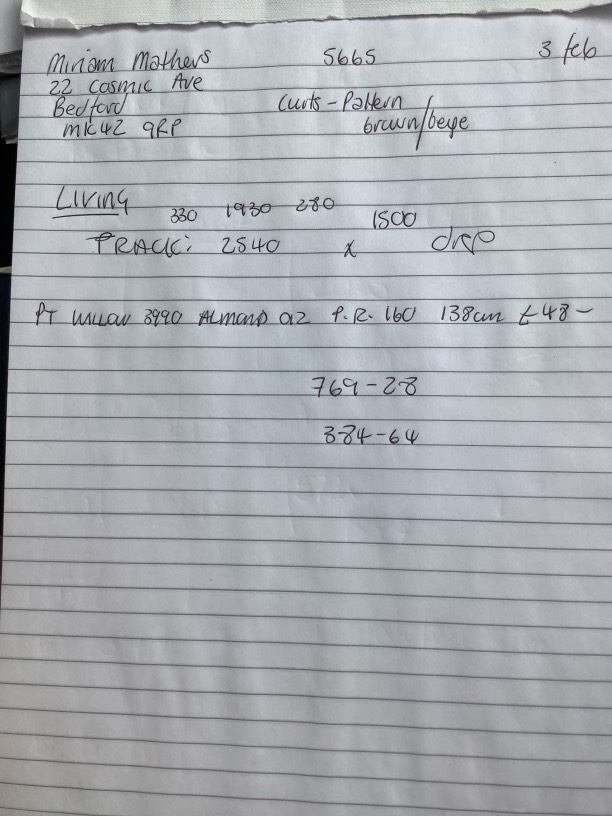 Miriam Mathers 5665 3 feb
22 Cosmic Ave
Bedford Curts - Pattern
MK42 9RP brown/beye
LIVING 330 1930 280
TRACK: 2540 x 1500 drop
PT WILLOW 3990 ALMOND 02 P.R. 160 138cm £48 -
769-28
384-64